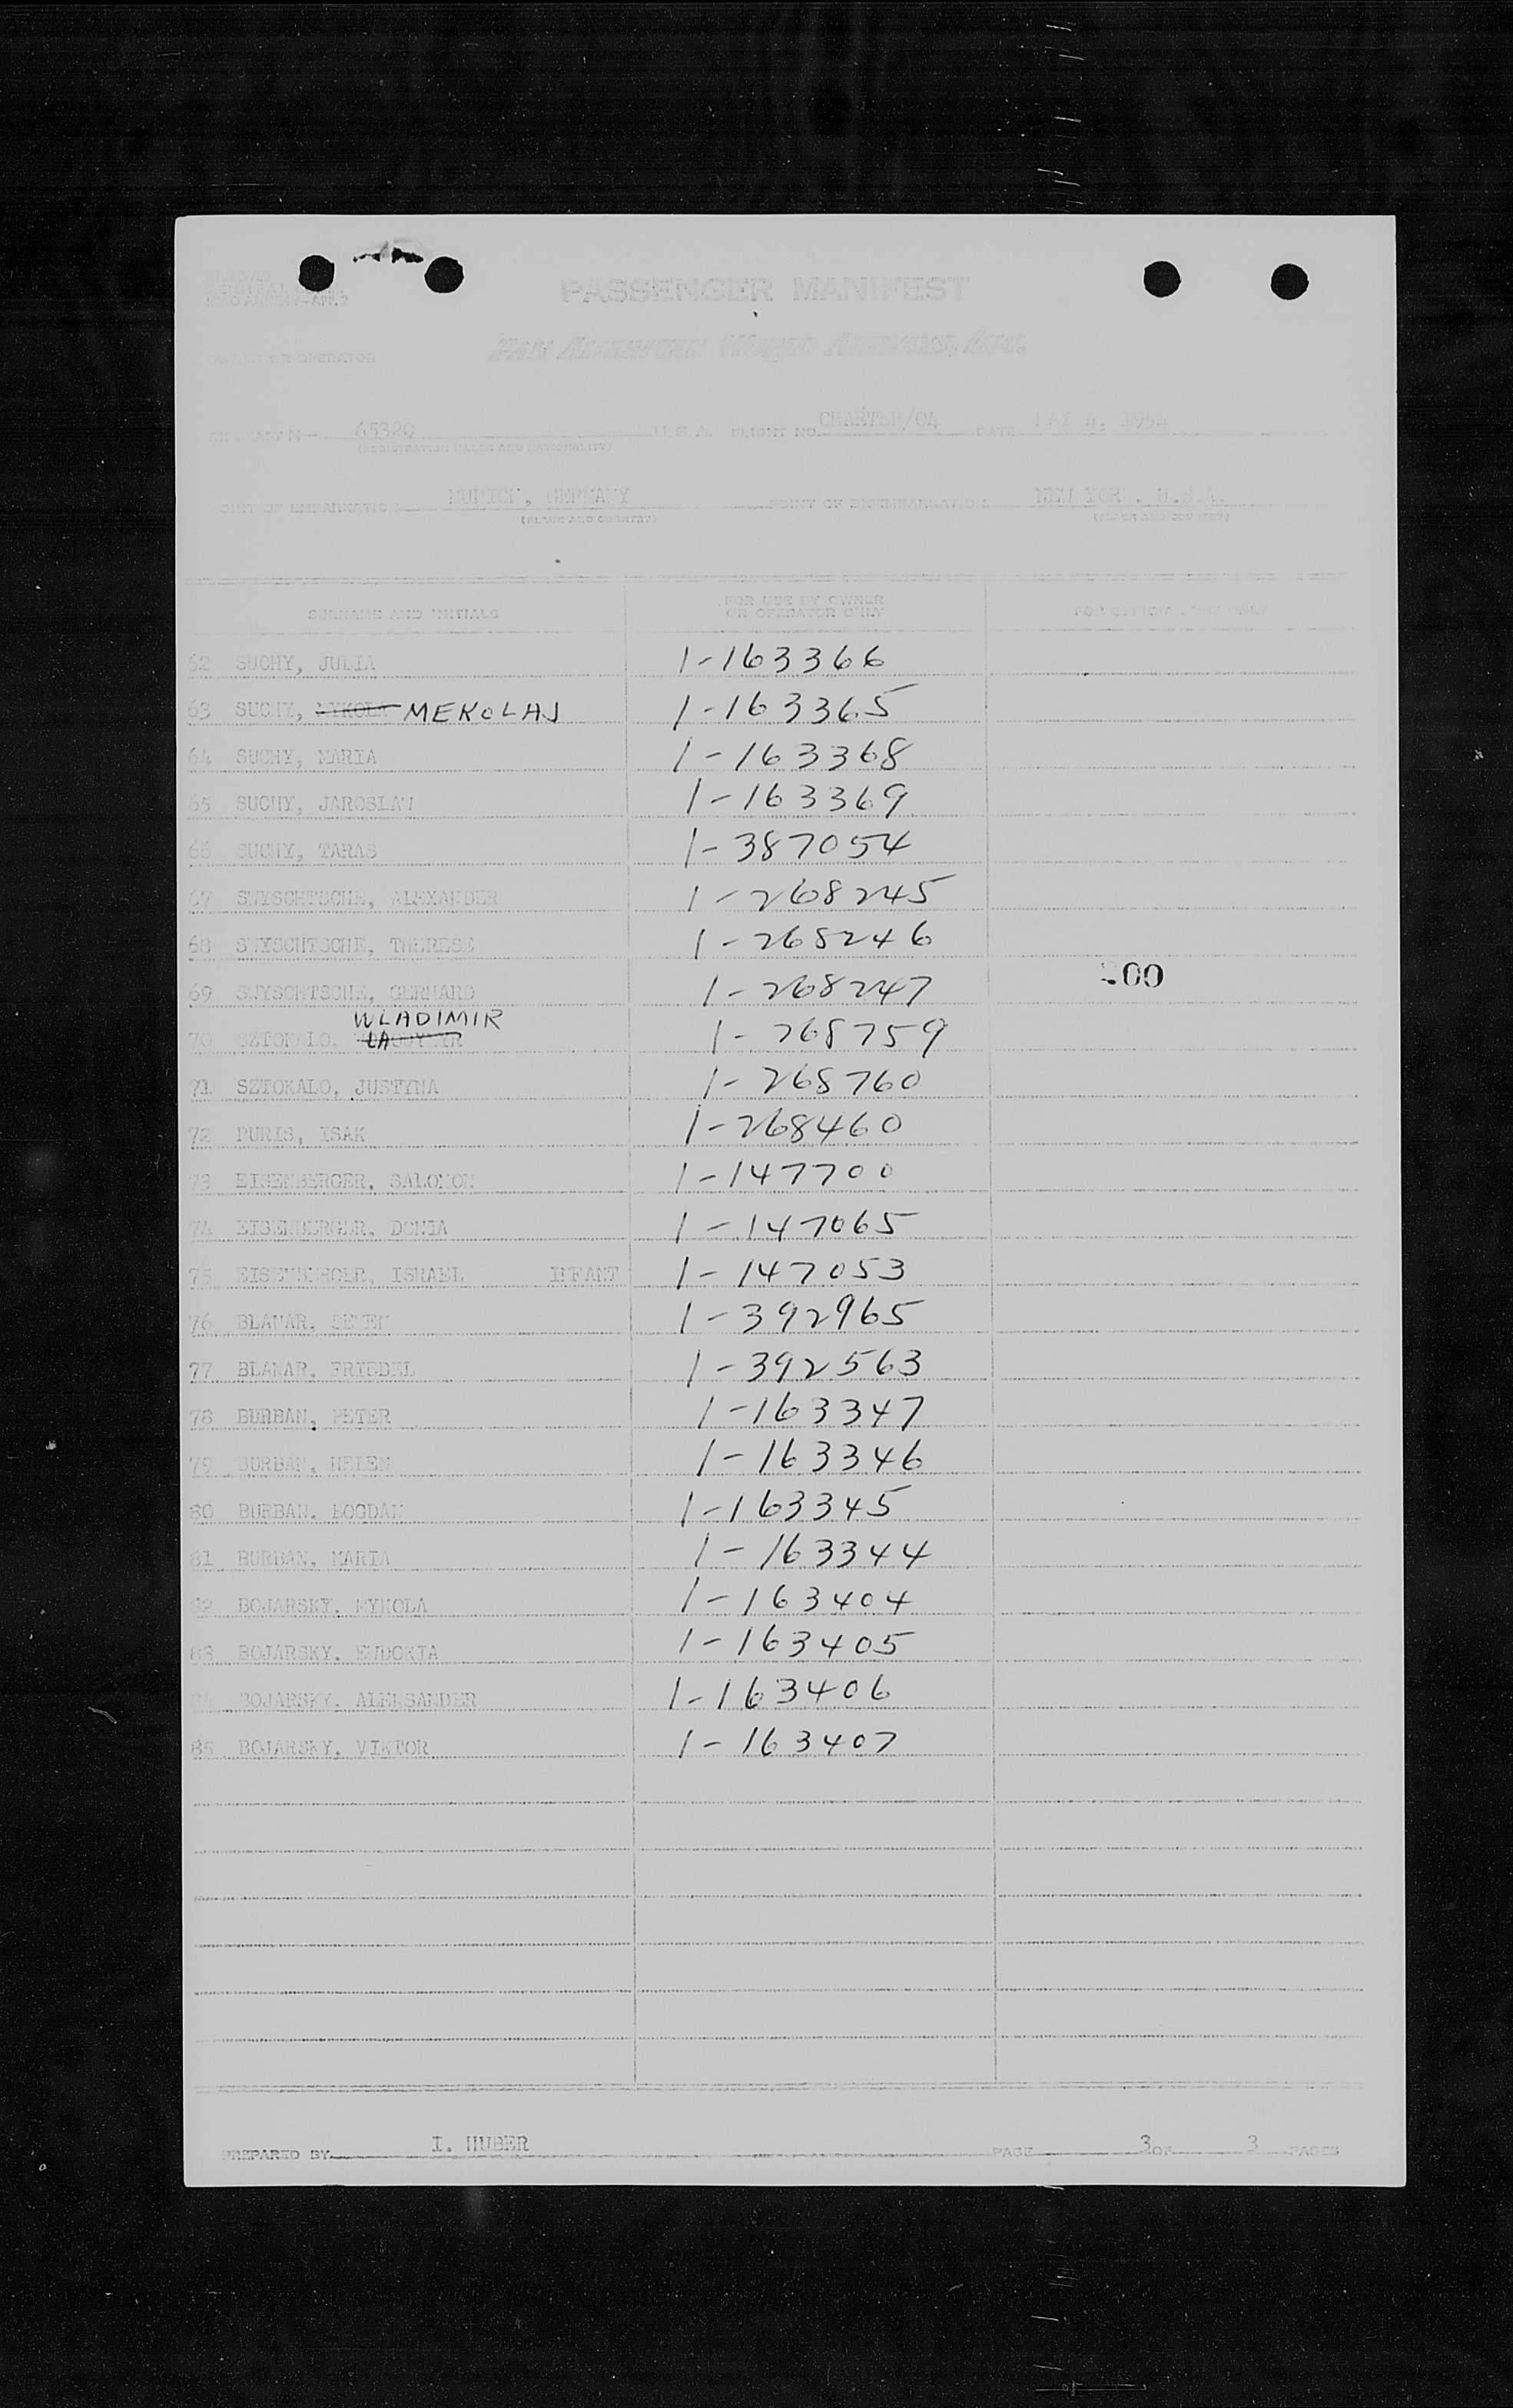 PASSENGER MANIFEST
PAN AMERICAN WORLD AIRWAYS, INC.
OWNER OR OPERATOR
AIRCRAFT N- 65380 U.S.A. FLIGHT NO. CHARTER/04 DATE MAY 4, 1954
(REGISTRATION MARKS AND NATIONALITY)
POINT OF EMBARKATION MUNICH, GERMANY POINT OF DISEMBARKATION NEW YORK, U.S.A.
(PLACE AND COUNTRY) (PLACE AND COUNTRY)
SURNAME AND INITIALS FOR USE BY OWNER OR OPERATOR ONLY FOR OFFICIAL USE ONLY
62 SUCHY, JULIA 1-163366
63 SUCHY, MYKOLA MEKOLAJ 1-163365
64 SUCHY, MARIA 1-163368
65 SUCHY, JAROSLAW 1-163369
66 SUCHY, TARAS 1-387054
67 SWYSCHTSCHE, ALEXANDER 1-268245
68 SWYSCHTSCHE, THERESE 1-268246
69 SWYSCHTSCHE, GERHARD 1-268247 00
WLADIMIR
70 SZTOKALO, 1-268759
71 SZTOKALO, JUSTYNA 1-268760
72 PURIS, ISAK 1-268460
73 EISENBERGER, SALOMON 1-147700
74 EISENBERGER, DONIA 1-147065
75 EISENBERGER, ISRAEL INFANT 1-147053
76 BLANAR, SEMEN 1-392965
77 BLANAR, FRIEDEL 1-392563
78 BURBAN, PETER 1-163347
79 BURBAN, HELEN 1-163346
80 BURBAN, BOGDAN 1-163345
81 BURBAN, MARIA 1-163344
82 BOJARSKY, MYKOLA 1-163404
83 BOJARSKY, EUDOKIA 1-163405
84 BOJARSKY, ALEKSANDER 1-163406
85 BOJARSKY, VIKTOR 1-163407
PREPARED BY I. HUBER PAGE 3 OF 3 PAGES